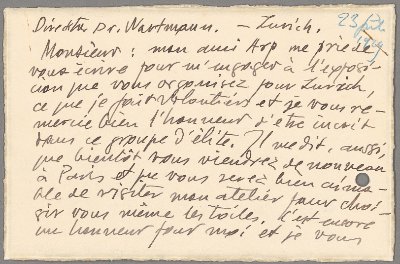 Direktor Dr. Wartmann. – Zurich.
23 juil
29
Monsieur: mon ami Arp me prie de
vous écrire pour m'engager à l'exposi-
cion que vous organisez pour Zurich,
ce que je fait volontiers et je vous re-
mercie bien l'honneur d'etre inscrit
dans ce groupe d'élite. Il me dit, aussi,
que bientôt vous viendrez de nouveau
à Paris et que vous serez bien aima-
ble de visiter mon atelier pour choi-
sir vous même les toiles. C'est encore
un honneur pour moi et je vous